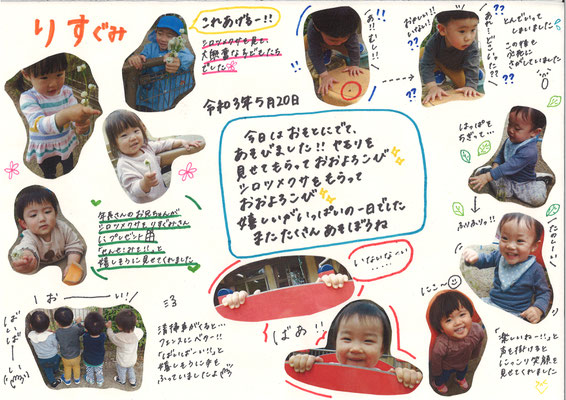 りすぐみ
これあげるー!!
シロツメクサを見て、
大興奮な子どもたち
でした
令和3年5月20日
あ!!
むし!!
おやしい!!
いない!?
あれ?どこいった??
とんでいって
しまいました
この後も
必死に
さがしていました
今日はおもとにでて、
あそびました!! やもりを
見せてもらっておおよろこび
シロツメクサをもらって
おおよろこび
嬉しいがいっぱいの一日でした
またたくさん あそぼうね
はっぱを
ちぎって…
ふりふりっ!!
たのしーい
年長さんのお兄ちゃんが
シロツメクサをりすぐみさん
にプレゼント
「せんせいみてー!!」と
嬉しそうに見せてくれました
いないないい
......
ばあ!!
にこ〜
「楽しいねー!!」と
声を掛けると
にっこり笑顔を
見せてくれました
おーい!
ばばーい
清掃車がくると…
フェンスにペター!!
「ばいばーい!!」と
嬉しそうに手を
ふっていましたよ